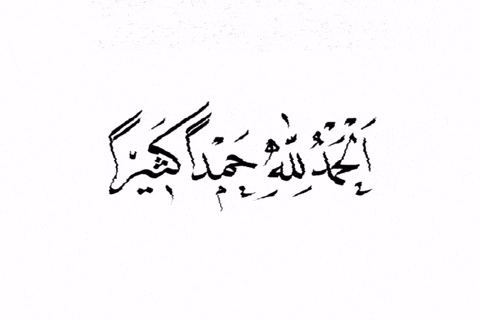 اَلْحَمْدُ لِلّٰهِ حَمْدًا كَثِيْرًا